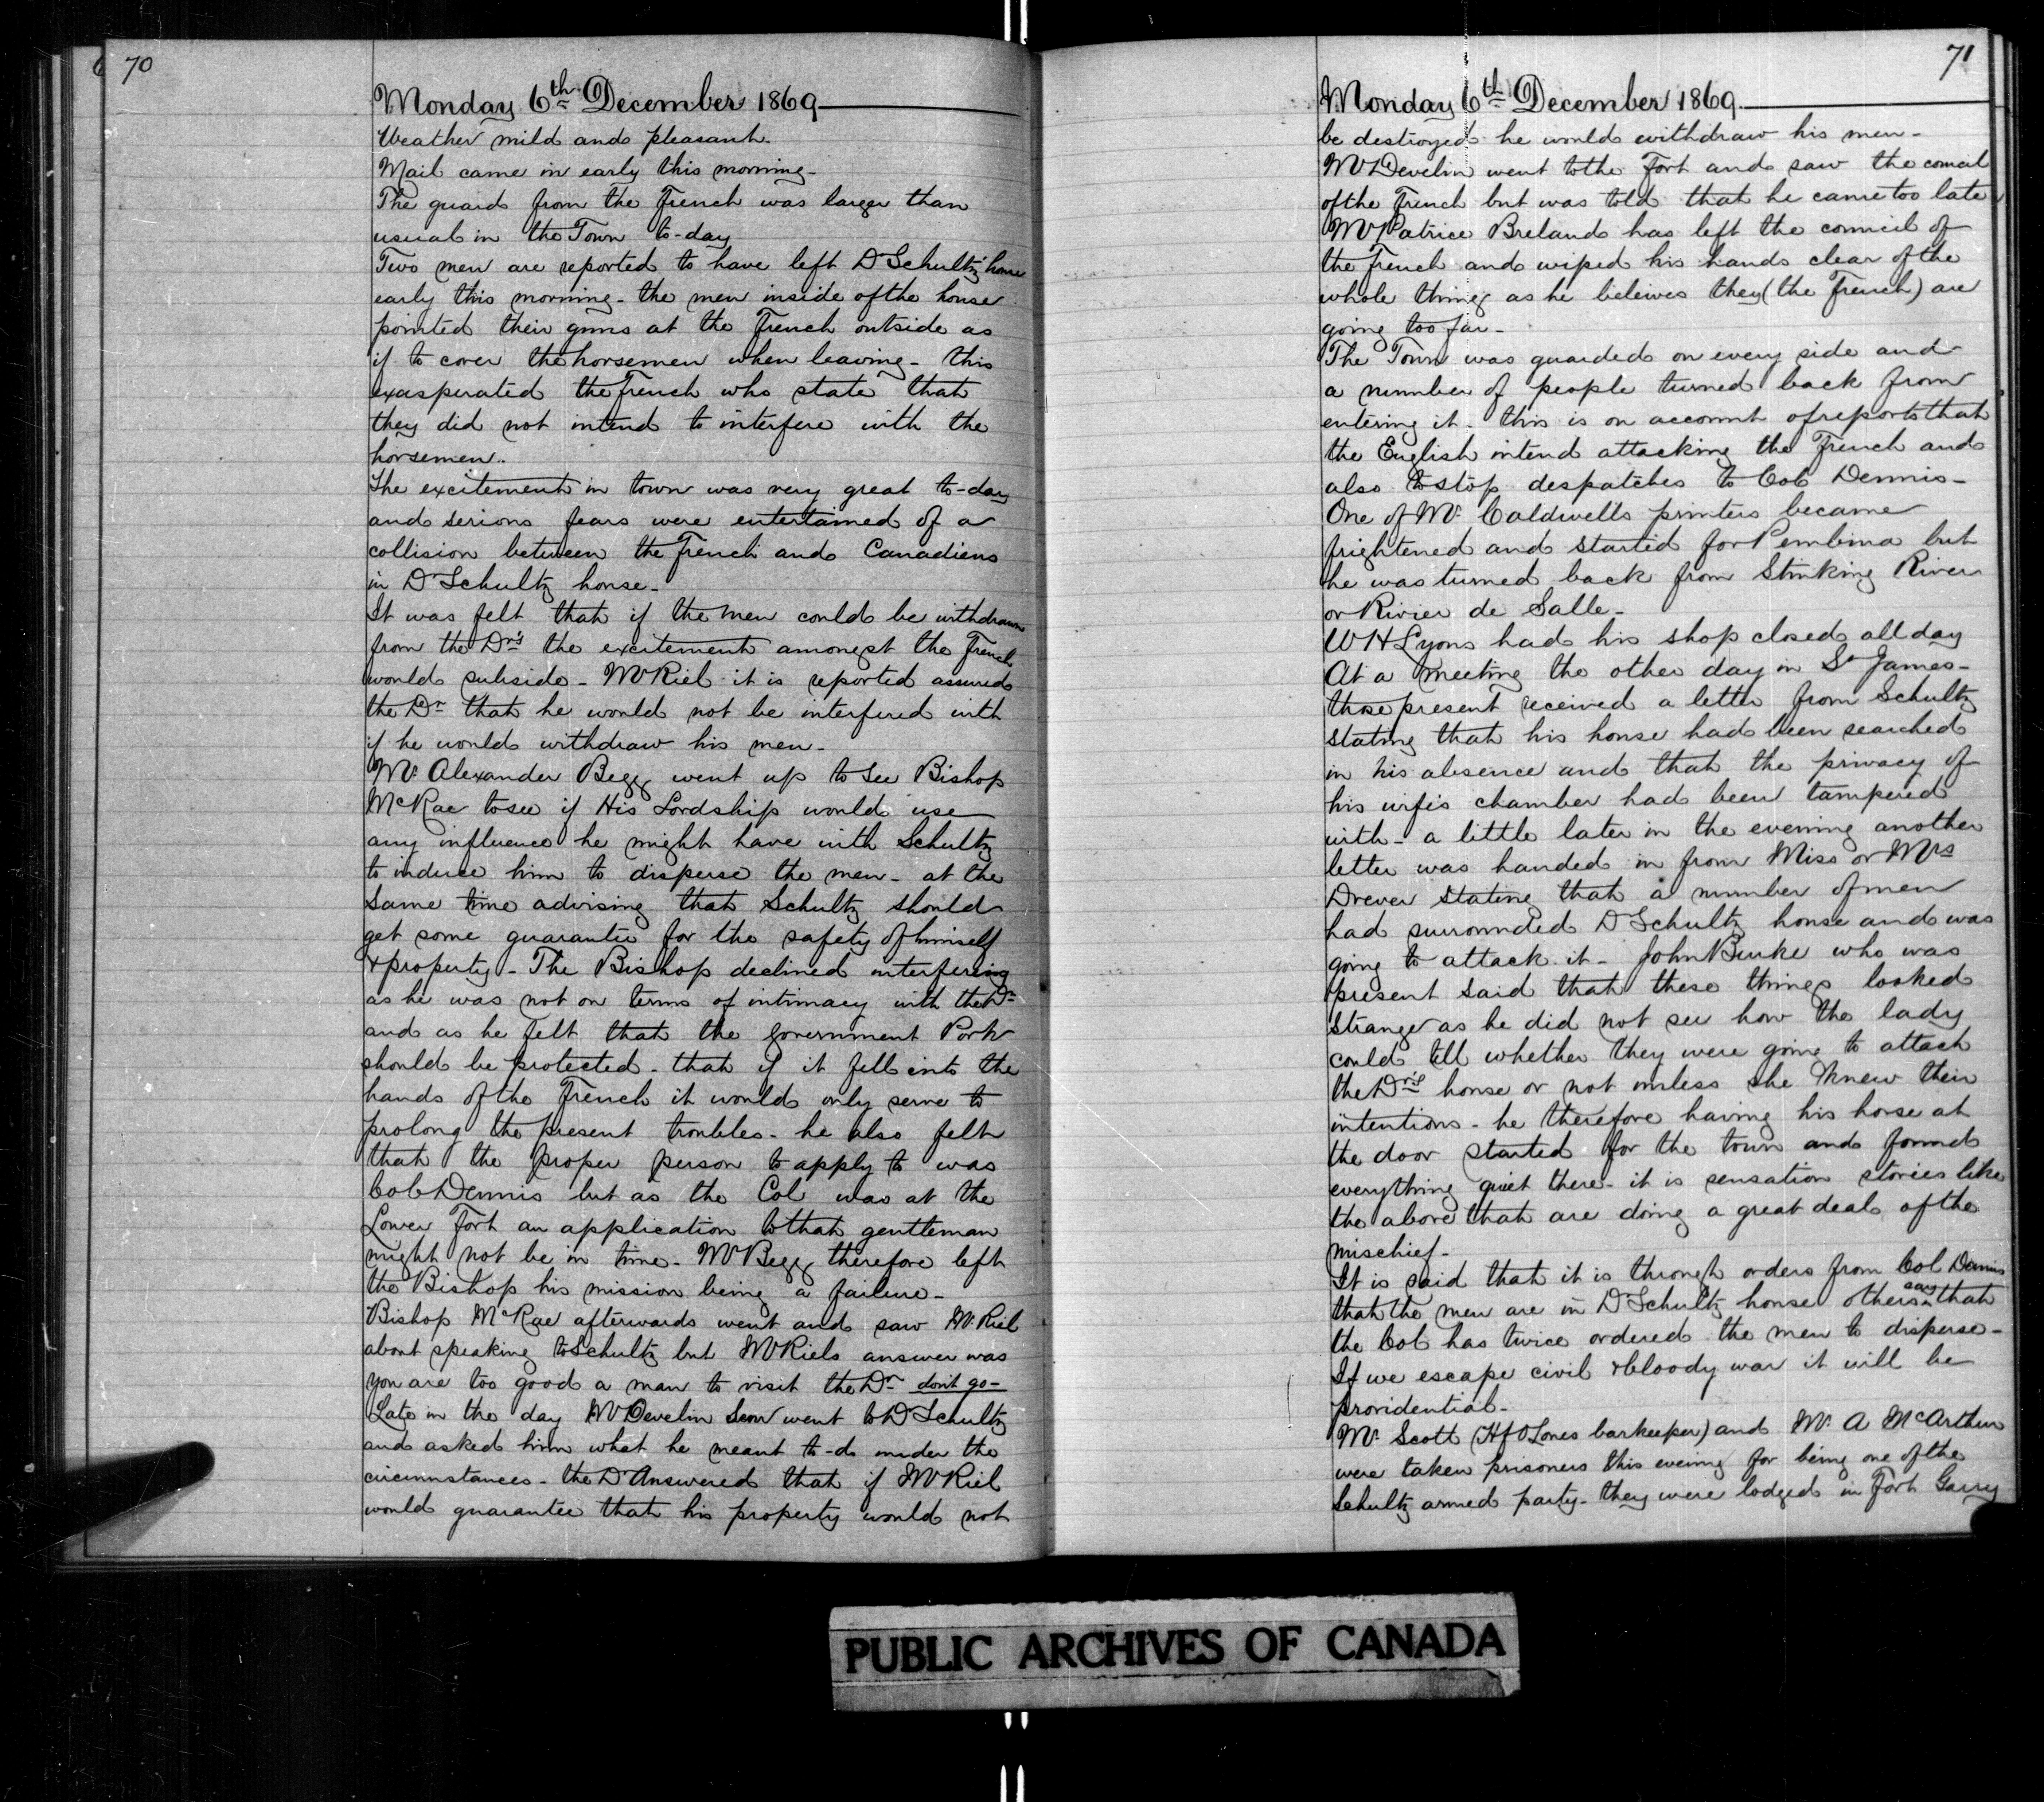 70
Monday 6th December 1869
Weather mild and pleasant.
Mail came in early this morning -
The guard from the French was larger than
usual in the Town to-day
Two men are reported to have left Dr Schultz' house
early this morning - the men inside of the house
pointed their guns at the French outside as
if to cover the horsemen when leaving - this
exasperated the French who state that
they did not intend to interfere with the
horsemen..
The excitement in town was very great to-day
and serious fears were entertained of a
collision between the French and Canadiens
in Dr Schultz house -
It was felt that if the men could be withdrawn
from the Dr's the excitement amongst the French
would subside - Mr Riel it is reported assured
the Dr that he would not be interfered with
if he would withdraw his men -
Mr. Alexander Begg went up to see Bishop
McRae to see if His Lordship would use
any influence he might have with Schultz
to induce him to disperse the men - at the
same time advising that Schultz should
get some guarantee for the safety of himself
& property - The Bishop declined interfering
as he was not on terms of intimacy with the Dr
and as he felt that the government Pork
should be protected - that if it fell into the
hands of the French it would only serve to
prolong the present troubles - he also felt
that the proper person to apply to was
Col Dennis but as the Col was at the
Lower Fort an application to that gentleman
might not be in time - Mr Begg therefore left
the Bishop his mission being a failure -
Bishop McRae afterwards went and saw Mr. Riel
about speaking to Schultz but Mr Riels answer was
you are too good a man to visit the Dr don't go -
Late in the day Mr Develin Senr went to Dr Schultz
and asked him what he meant to-do under the
circumstances - the Dr Answered that if Mr Riel
would guarantee that his property would not
71
Monday 6th December 1869.
be destroyed he would withdraw his men -
Mr Develin went to the Fort and saw the council
of the French but was told that he came too late
Mr Patrice Breland has left the council of
the French and wiped his hands clear of the
whole thing as he beleives they (the French) are
going too far -
The Town was guarded on every side and
a number of people turned back from
entering it - this is on account of reports that
the English intend attacking the French and
also to stop despatches to Col Dennis -
One of Mr. Caldwells printers became
frightened and started for Pembina but
he was turned back from Stinking River
or Rivier de Salle -
W H Lyons had his shop closed all day
At a meeting the other day in St James -
those present received a letter from Schultz
stating that his house had been searched
in his absence and that the privacy of
his wifes chamber had been tampered
with - a little later in the evening another
letter was handed in from Miss or Mrs
Drever stating that a number of men
had surrounded Dr Schultz house and was
going to attack it - John Burke who was
present said that these things looked
strange as he did not see how the lady
could tell whether they were going to attack
the Dr's house or not unless she knew their
intentions - he therefore having his horse at
the door started for the town and found
everything quiet there - it is sensation stories like
the above that are doing a great deal of the
mischief -
It is said that it is through orders from Col Dennis
that the men are in Dr Schultz house others say that
the Col has twice ordered the men to disperse -
If we escape civil & bloody war it will be
providential -
Mr. Scott (Hf O'Lones barkeeper) and Mr. A McArthur
were taken prisoners this evening for being one of the
Schultz armed party - they were lodged in Fort Garry
PUBLIC ARCHIVES OF CANADA